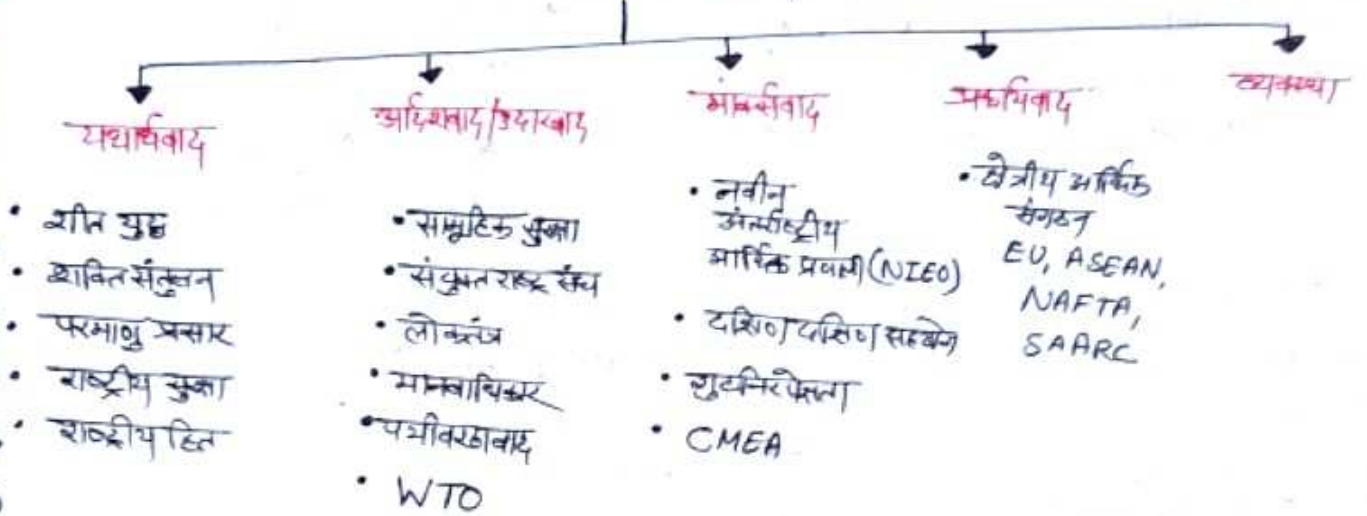 यथार्थवाद
• शीत युद्ध
• शक्ति संतुलन
• परमाणु प्रसार
• राष्ट्रीय सुरक्षा
• राष्ट्रीय हित
आदर्शवाद/उदारवाद
• सामूहिक सुरक्षा
• संयुक्त राष्ट्र संघ
• लोकतंत्र
• मानवाधिकार
• पर्यावरणवाद
• WTO
मार्क्सवाद
• नवीन
अंतर्राष्ट्रीय
आर्थिक प्रणाली (NIEO)
• दक्षिण दक्षिण सहयोग
• गुटनिरपेक्षता
• CMEA
प्रकार्यवाद
• क्षेत्रीय आर्थिक
संगठन
EU, ASEAN,
NAFTA,
SAARC
व्यवस्था